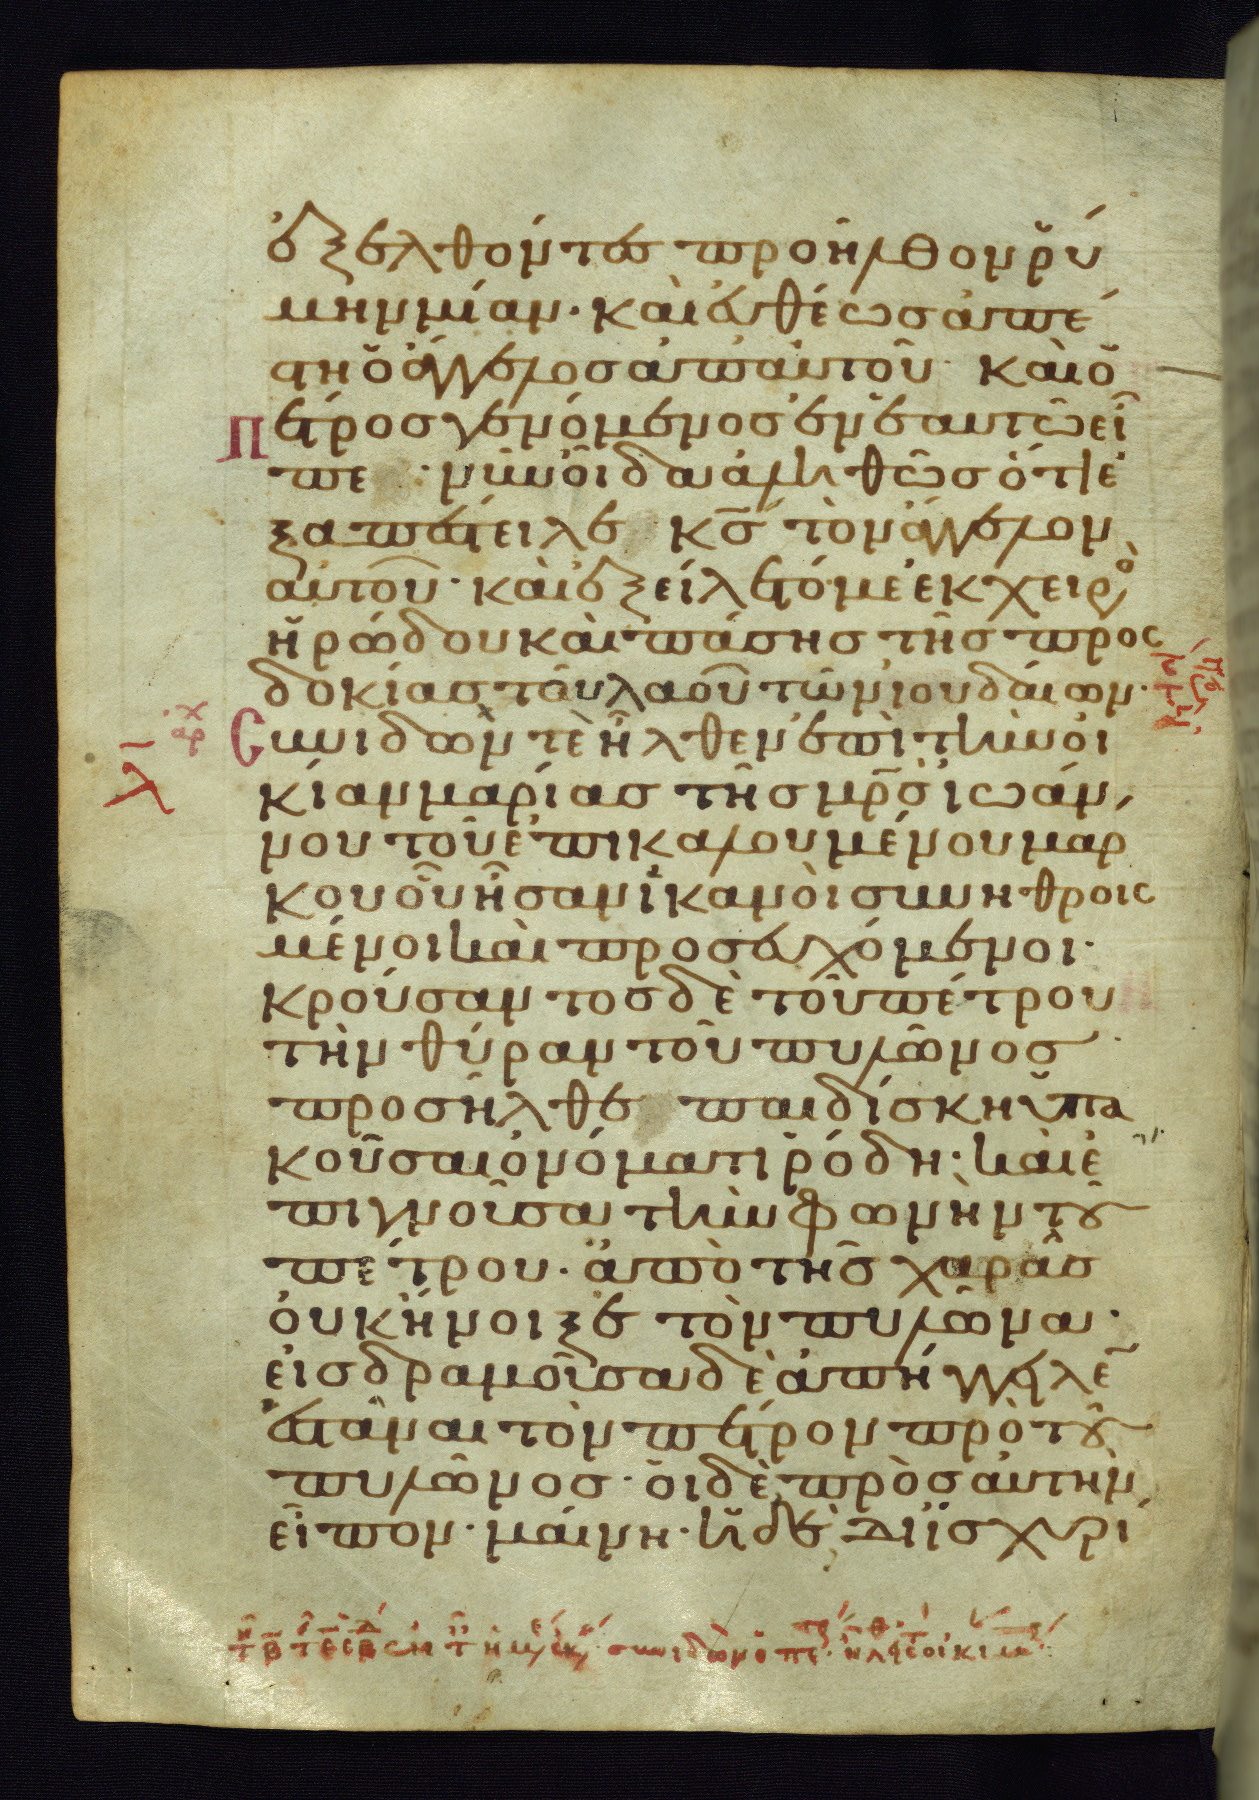 ἐξελθόντες προῆλθον ῥύ
μην μίαν· καὶ εὐθέως ἀπέ
στη ὁ ἄγγελος ἀπ' αὐτοῦ· καὶ ὁ
Πέτρος γενόμενος ἐν ἑαυτῶ εἶ
πε· νῦν οἶδα ἀληθῶς ὅτι ἐ
ξαπέστειλε κ̅ς̅ τὸν ἄγγελον
αὐτοῦ· καὶ ἐξείλετό με ἐκ χειρὸ
ἡρώδου καὶ πάσης τῆς προς
δοκίας τοῦ λαοῦ τῶν ἰουδαίων·
Συνιδών τε ἦλθεν ἐπὶ τὴν οἰ
κίαν μαρίας τῆς μ̅ρ̅ς̅ ἰωάν
νου τοῦ ἐπικαλουμένου μαρ
κου οὗ ἦσαν ἱκανοὶ συνηθροισ
μένοι καὶ προσευχόμενοι·
κρούσαντος δὲ τοῦ πέτρου
τὴν θύραν τοῦ πυλῶνος
προσῆλθε παιδίσκη ὑπα
κοῦσαι ὀνόματι ῥόδη· καὶ ἐ
πιγνοῦσα τὴν φωνὴν τοῦ
πέτρου· ἀπὸ τῆς χαρᾶς
οὐκ ἤνοιξε τὸν πυλῶνα·
εἰσδραμοῦσα δὲ ἀπήγγειλε
ἑστάναι τὸν πέτρον πρὸ τοῦ
πυλῶνος· οἱ δὲ πρὸς αὐτὴν
εἶπον· μαίνη· ἡ δὲ διϊσχυρί
λ̅